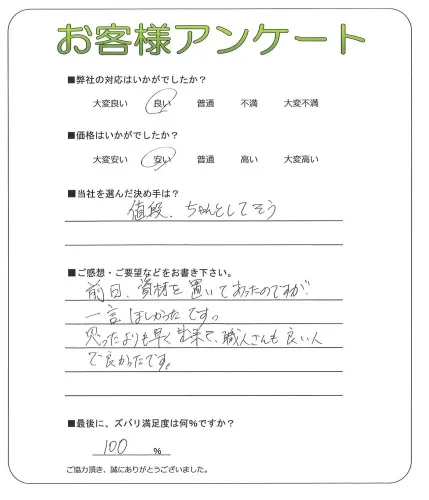 お客様アンケート
■弊社の対応はいかがでしたか？
大変良い 良い 普通 不満 大変不満
■価格はいかがでしたか？
大変安い 安い 普通 高い 大変高い
■当社を選んだ決め手は？
値段、ちゃんとしてそう
■ご感想・ご要望などをお書き下さい。
前日、資材を置いてあったのですが
一言ほしかったです。
思ったよりも早く出来て、職人さんも良い人
で良かったです。
■最後に、ズバリ満足度は何%ですか？
100 %
ご協力頂き、誠にありがとうございました。